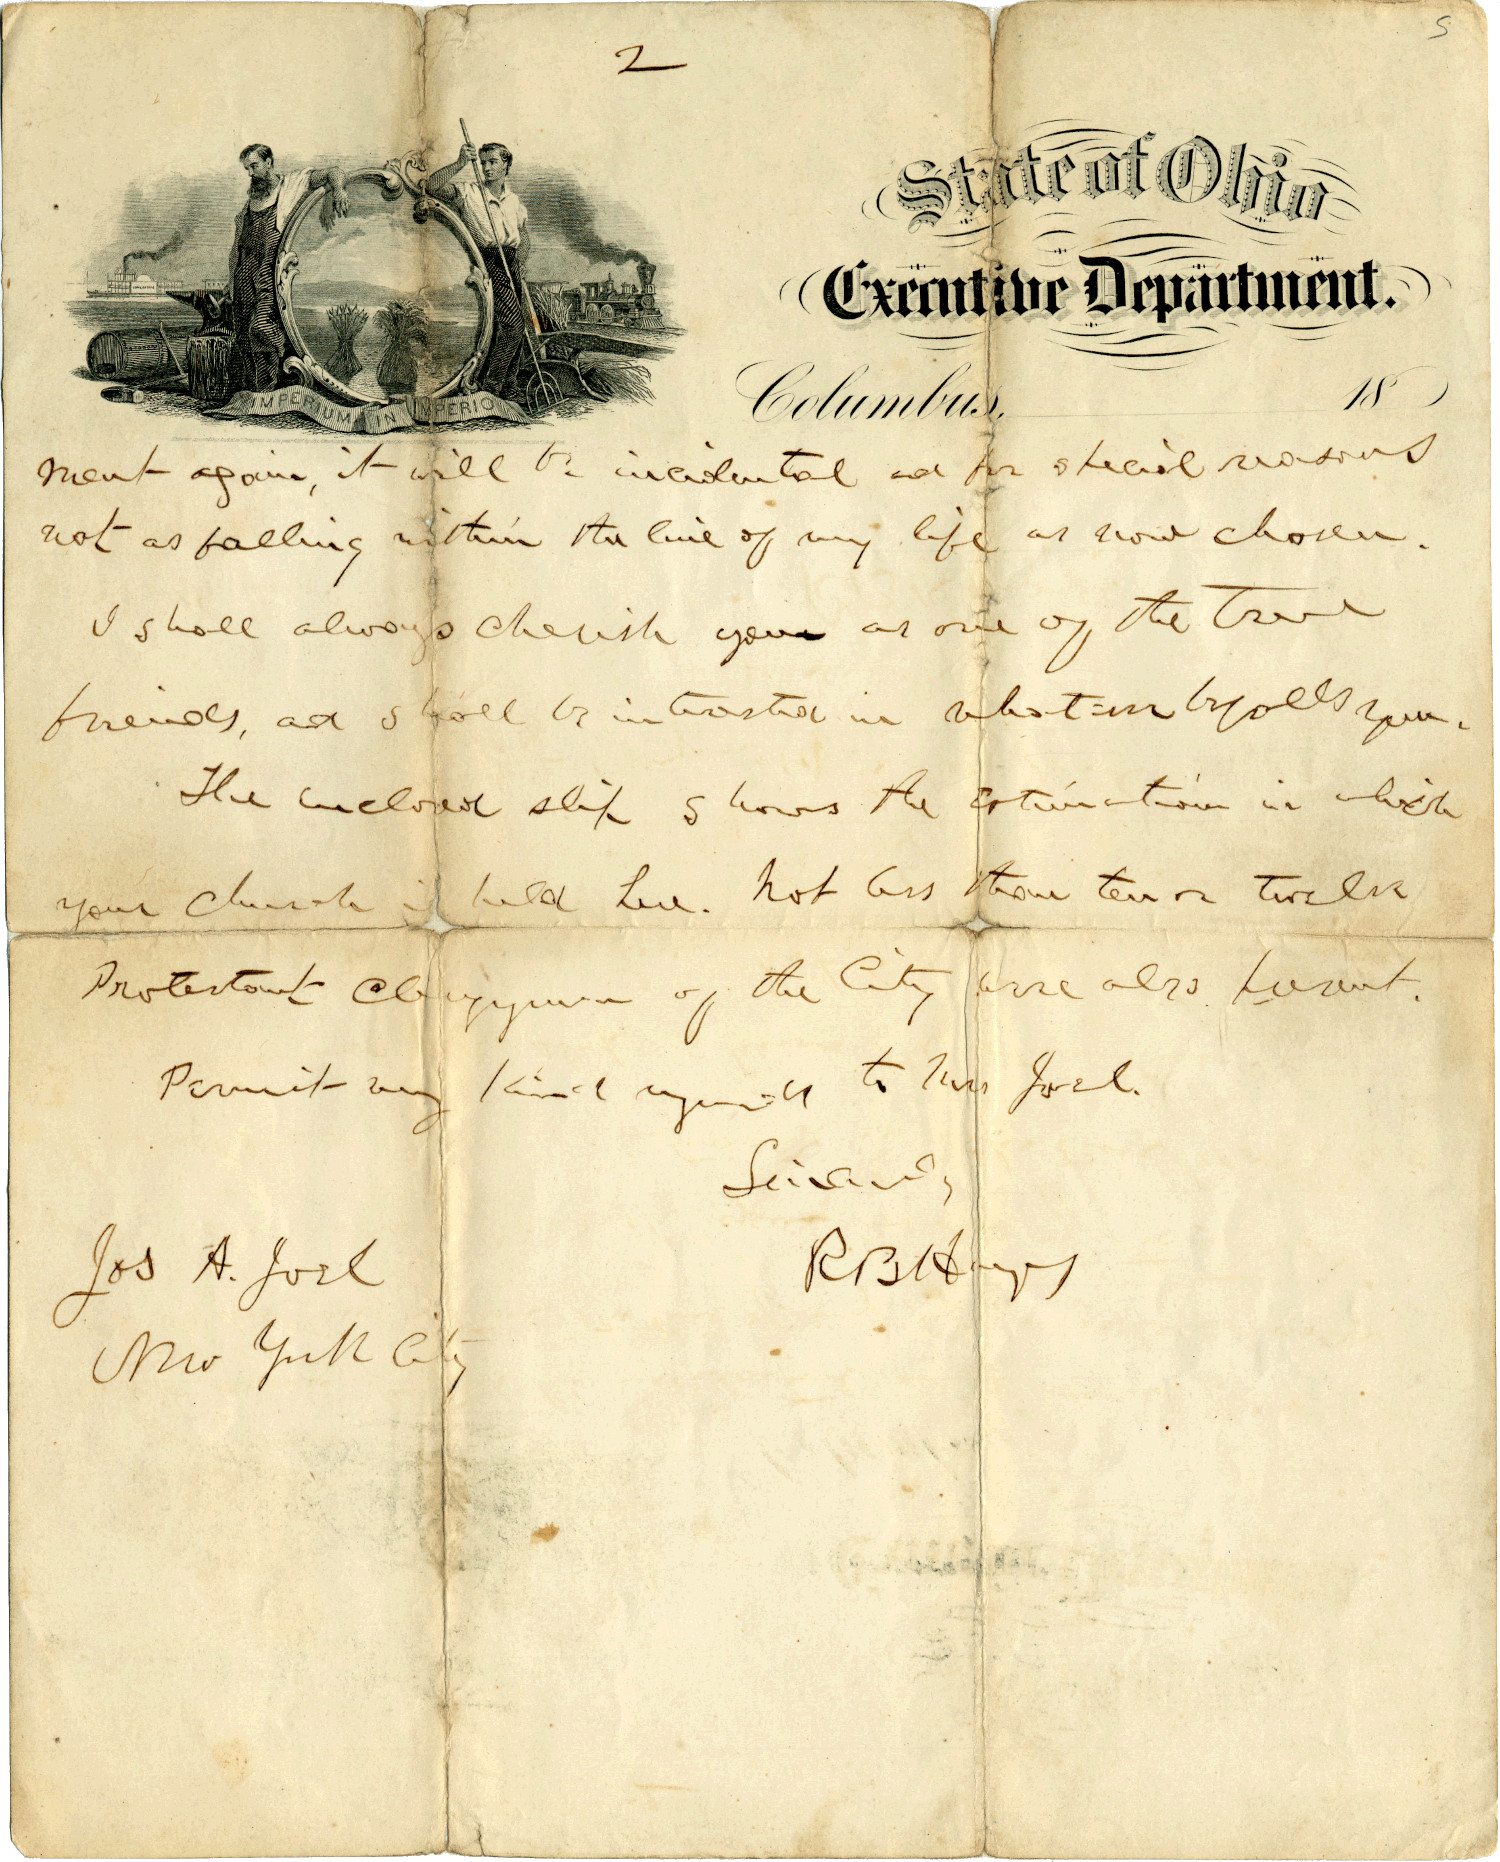 2
5
State of Ohio
Executive Department.
Columbus, 18
IMPERIUM IN IMPERIO
ment again, it will be incidental ad for special reasons
not as falling within the line of my life as now chosen.
I shall always cherish you as one of the true
friends, ad shall be interested in whatever befalls you.
The enclosed slip shows the estimation in which
your church is held here. Not less than ten or twelve
Protestant Clergymen of the City were also present.
Permit my kind regards to Mrs Joel.
Sincerely
R B Hayes
Jos A. Joel
New York City